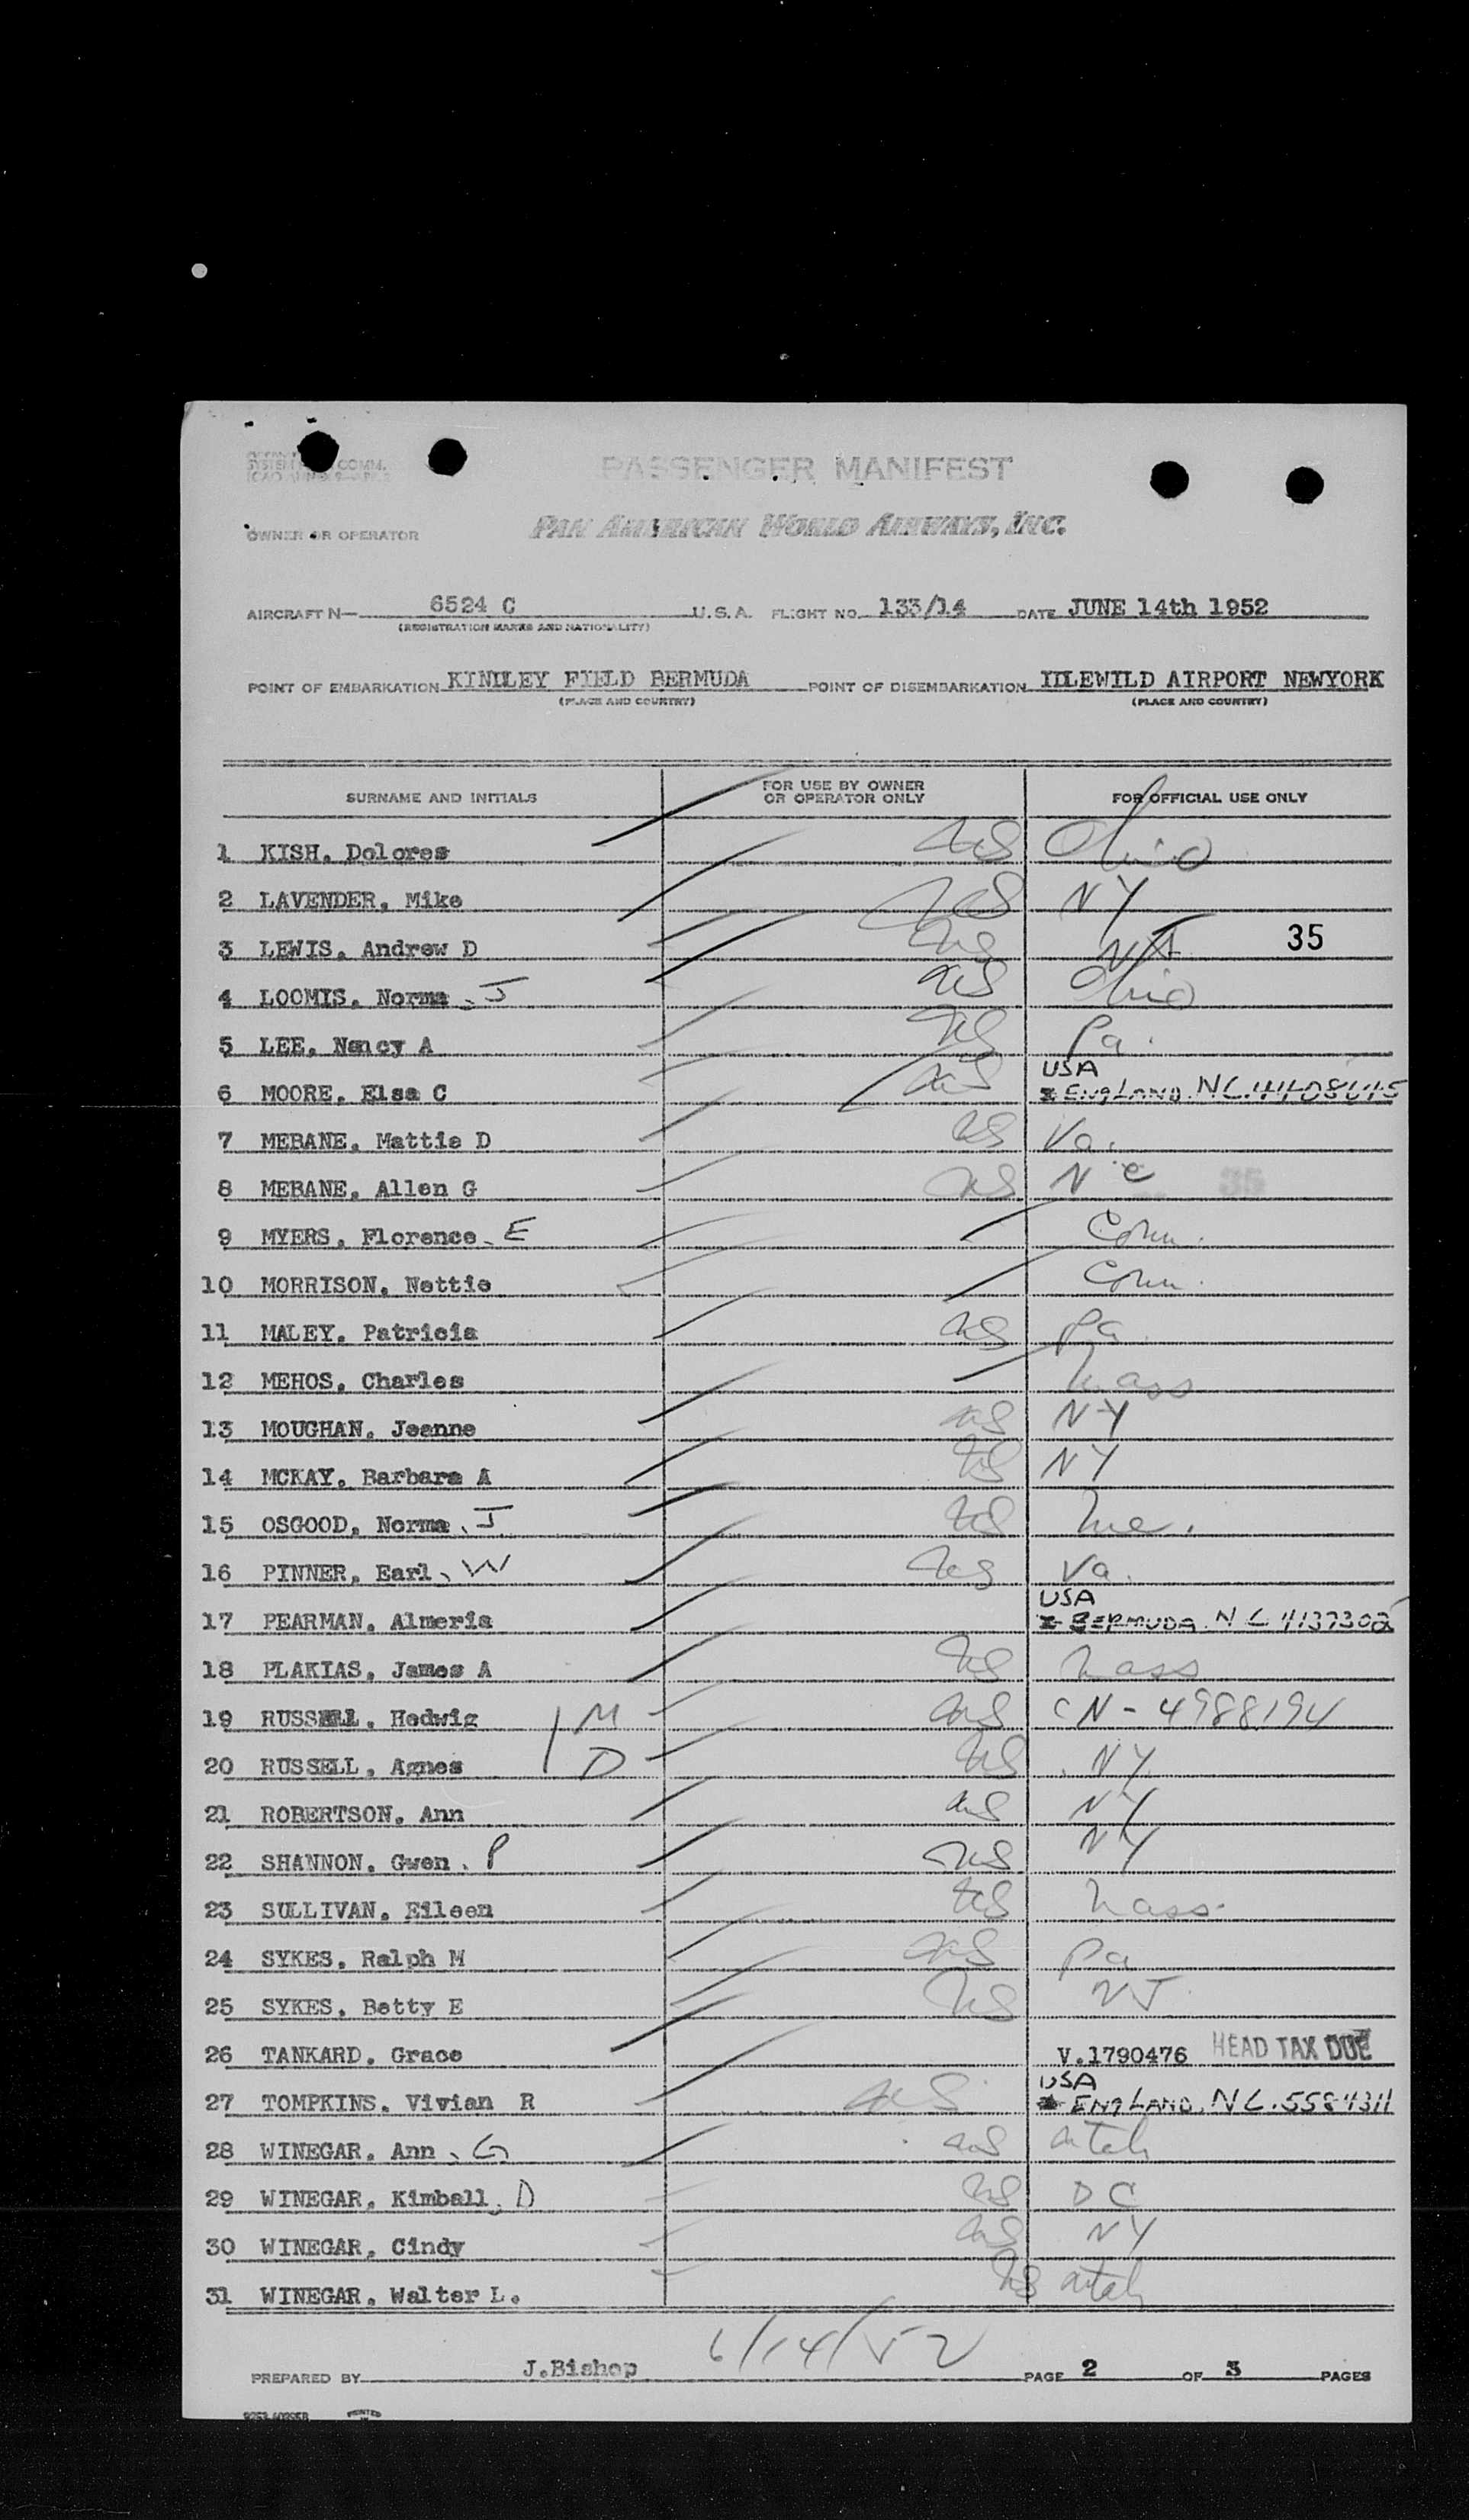 SYSTEM COMM.
PASSENGER MANIFEST
OWNER OR OPERATOR PAN AMERICAN WORLD AIRWAYS, INC.
AIRCRAFT N— 6524 C U.S.A. FLIGHT NO. 133/14 DATE JUNE 14th 1952
(REGISTRATION MARKS AND NATIONALITY)
POINT OF EMBARKATION KINDLEY FIELD BERMUDA POINT OF DISEMBARKATION IDLEWILD AIRPORT NEWYORK
(PLACE AND COUNTRY) (PLACE AND COUNTRY)
SURNAME AND INITIALS FOR USE BY OWNER OR OPERATOR ONLY FOR OFFICIAL USE ONLY
1 KISH, Dolores US Ohio
2 LAVENDER, Mike US NY
3 LEWIS, Andrew D US NJ 35
4 LOOMIS, Norma J US Ohio
5 LEE, Nancy A US Pa.
USA
6 MOORE, Elsa C US ENGLAND. NC.
7 MEBANE, Mattie D US Va.
8 MEBANE, Allen G US N C 35
9 MYERS, Florence E Conn.
10 MORRISON, Nettie Conn.
11 MALEY, Patricia US Pa
12 MEHOS, Charles Mass
13 MOUGHAN, Jeanne US NY
14 MCKAY, Barbara A US NY
15 OSGOOD, Norma J US Me.
16 PINNER, Earl W US Va.
USA
17 PEARMAN, Almeria BERMUDA. NC 4137302
18 PLAKIAS, James A US Mass
19 RUSSELL, Hedwig M US CN-4988194
20 RUSSELL, Agnes D US NY
21 ROBERTSON, Ann US NY
22 SHANNON, Gwen P US NY
23 SULLIVAN, Eileen US Mass.
24 SYKES, Ralph M US Pa
25 SYKES, Betty E US NJ
26 TANKARD, Grace V.1790476 HEAD TAX DUE
USA
27 TOMPKINS, Vivian R US ENGLAND. NC.5584311
28 WINEGAR, Ann G US Utah
29 WINEGAR, Kimball D US DC
30 WINEGAR, Cindy US NY
31 WINEGAR, Walter L. US Utah
6/14/52
PREPARED BY J.Bishop PAGE 2 OF 3 PAGES
PRINTED